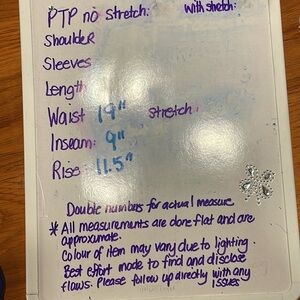 PTP no stretch: With stretch:
Shoulder
Sleeves
Length
Waist 19" stretch:
Inseam: 9"
Rise: 11.5"
Double numbers for actual measure
* All measurements are done flat and are
approximate.
Colour of item may vary due to lighting.
Best effort made to find and disclose
flaws. Please follow up directly with any
issues